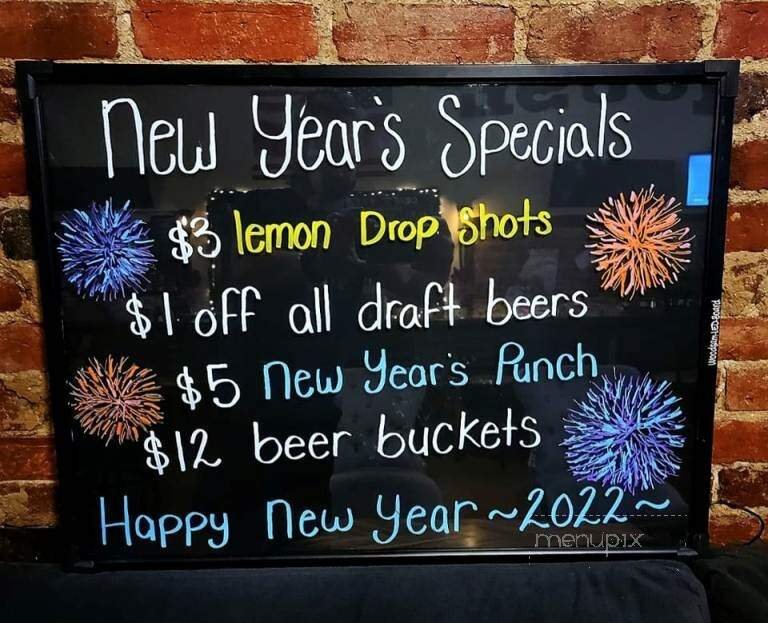 New Year's Specials
$3 lemon Drop Shots
$1 off all draft beers
$5 New Year's Punch
$12 beer buckets
Happy New Year ~2022~
menupix